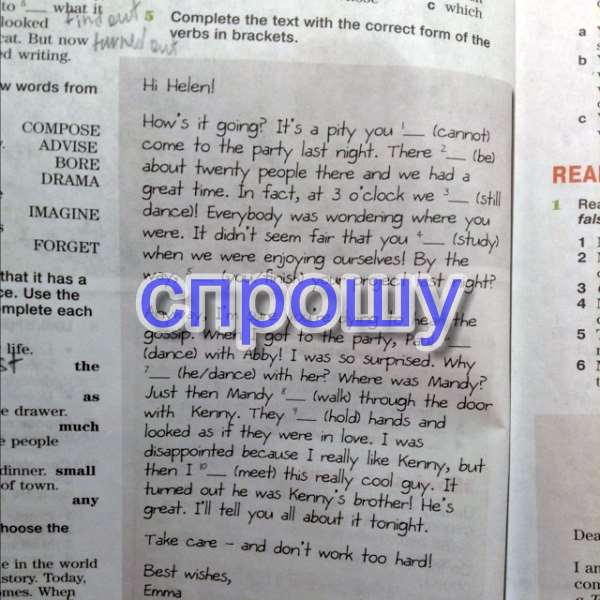 to 5__ what it
looked find out
cat. But now turned out
ed writing.
w words from
COMPOSE
ADVISE
BORE
DRAMA
IMAGINE
FORGET
that it has a
ce. Use the
mplete each
life.
the
as
e drawer.
much
e people
dinner. small
of town.
any
hoose the
e in the world
story. Today,
omes. When
5 Complete the text with the correct form of the
verbs in brackets.
Hi Helen!
How's it going? It's a pity you 1__ (cannot)
come to the party last night. There 2__ (be)
about twenty people there and we had a
great time. In fact, at 3 o'clock we 3__ (still
dance)! Everybody was wondering where you
were. It didn't seem fair that you 4__ (study)
when we were enjoying ourselves! By the
way, 5__ (you/finish) your project last night?
спрошу
gossip. When I got to the party,
(dance) with Abby! I was so surprised. Why
7__ (he/dance) with her? Where was Mandy?
Just then Mandy 8__ (walk) through the door
with Kenny. They 9__ (hold) hands and
looked as if they were in love. I was
disappointed because I really like Kenny, but
then I 10__ (meet) this really cool guy. It
turned out he was Kenny's brother! He's
great. I'll tell you all about it tonight.
Take care – and don't work too hard!
Best wishes,
Emma
c which
a
b
c
REA
1 Rea
fals
1
2
3
4
5
6
Dea
I am
com